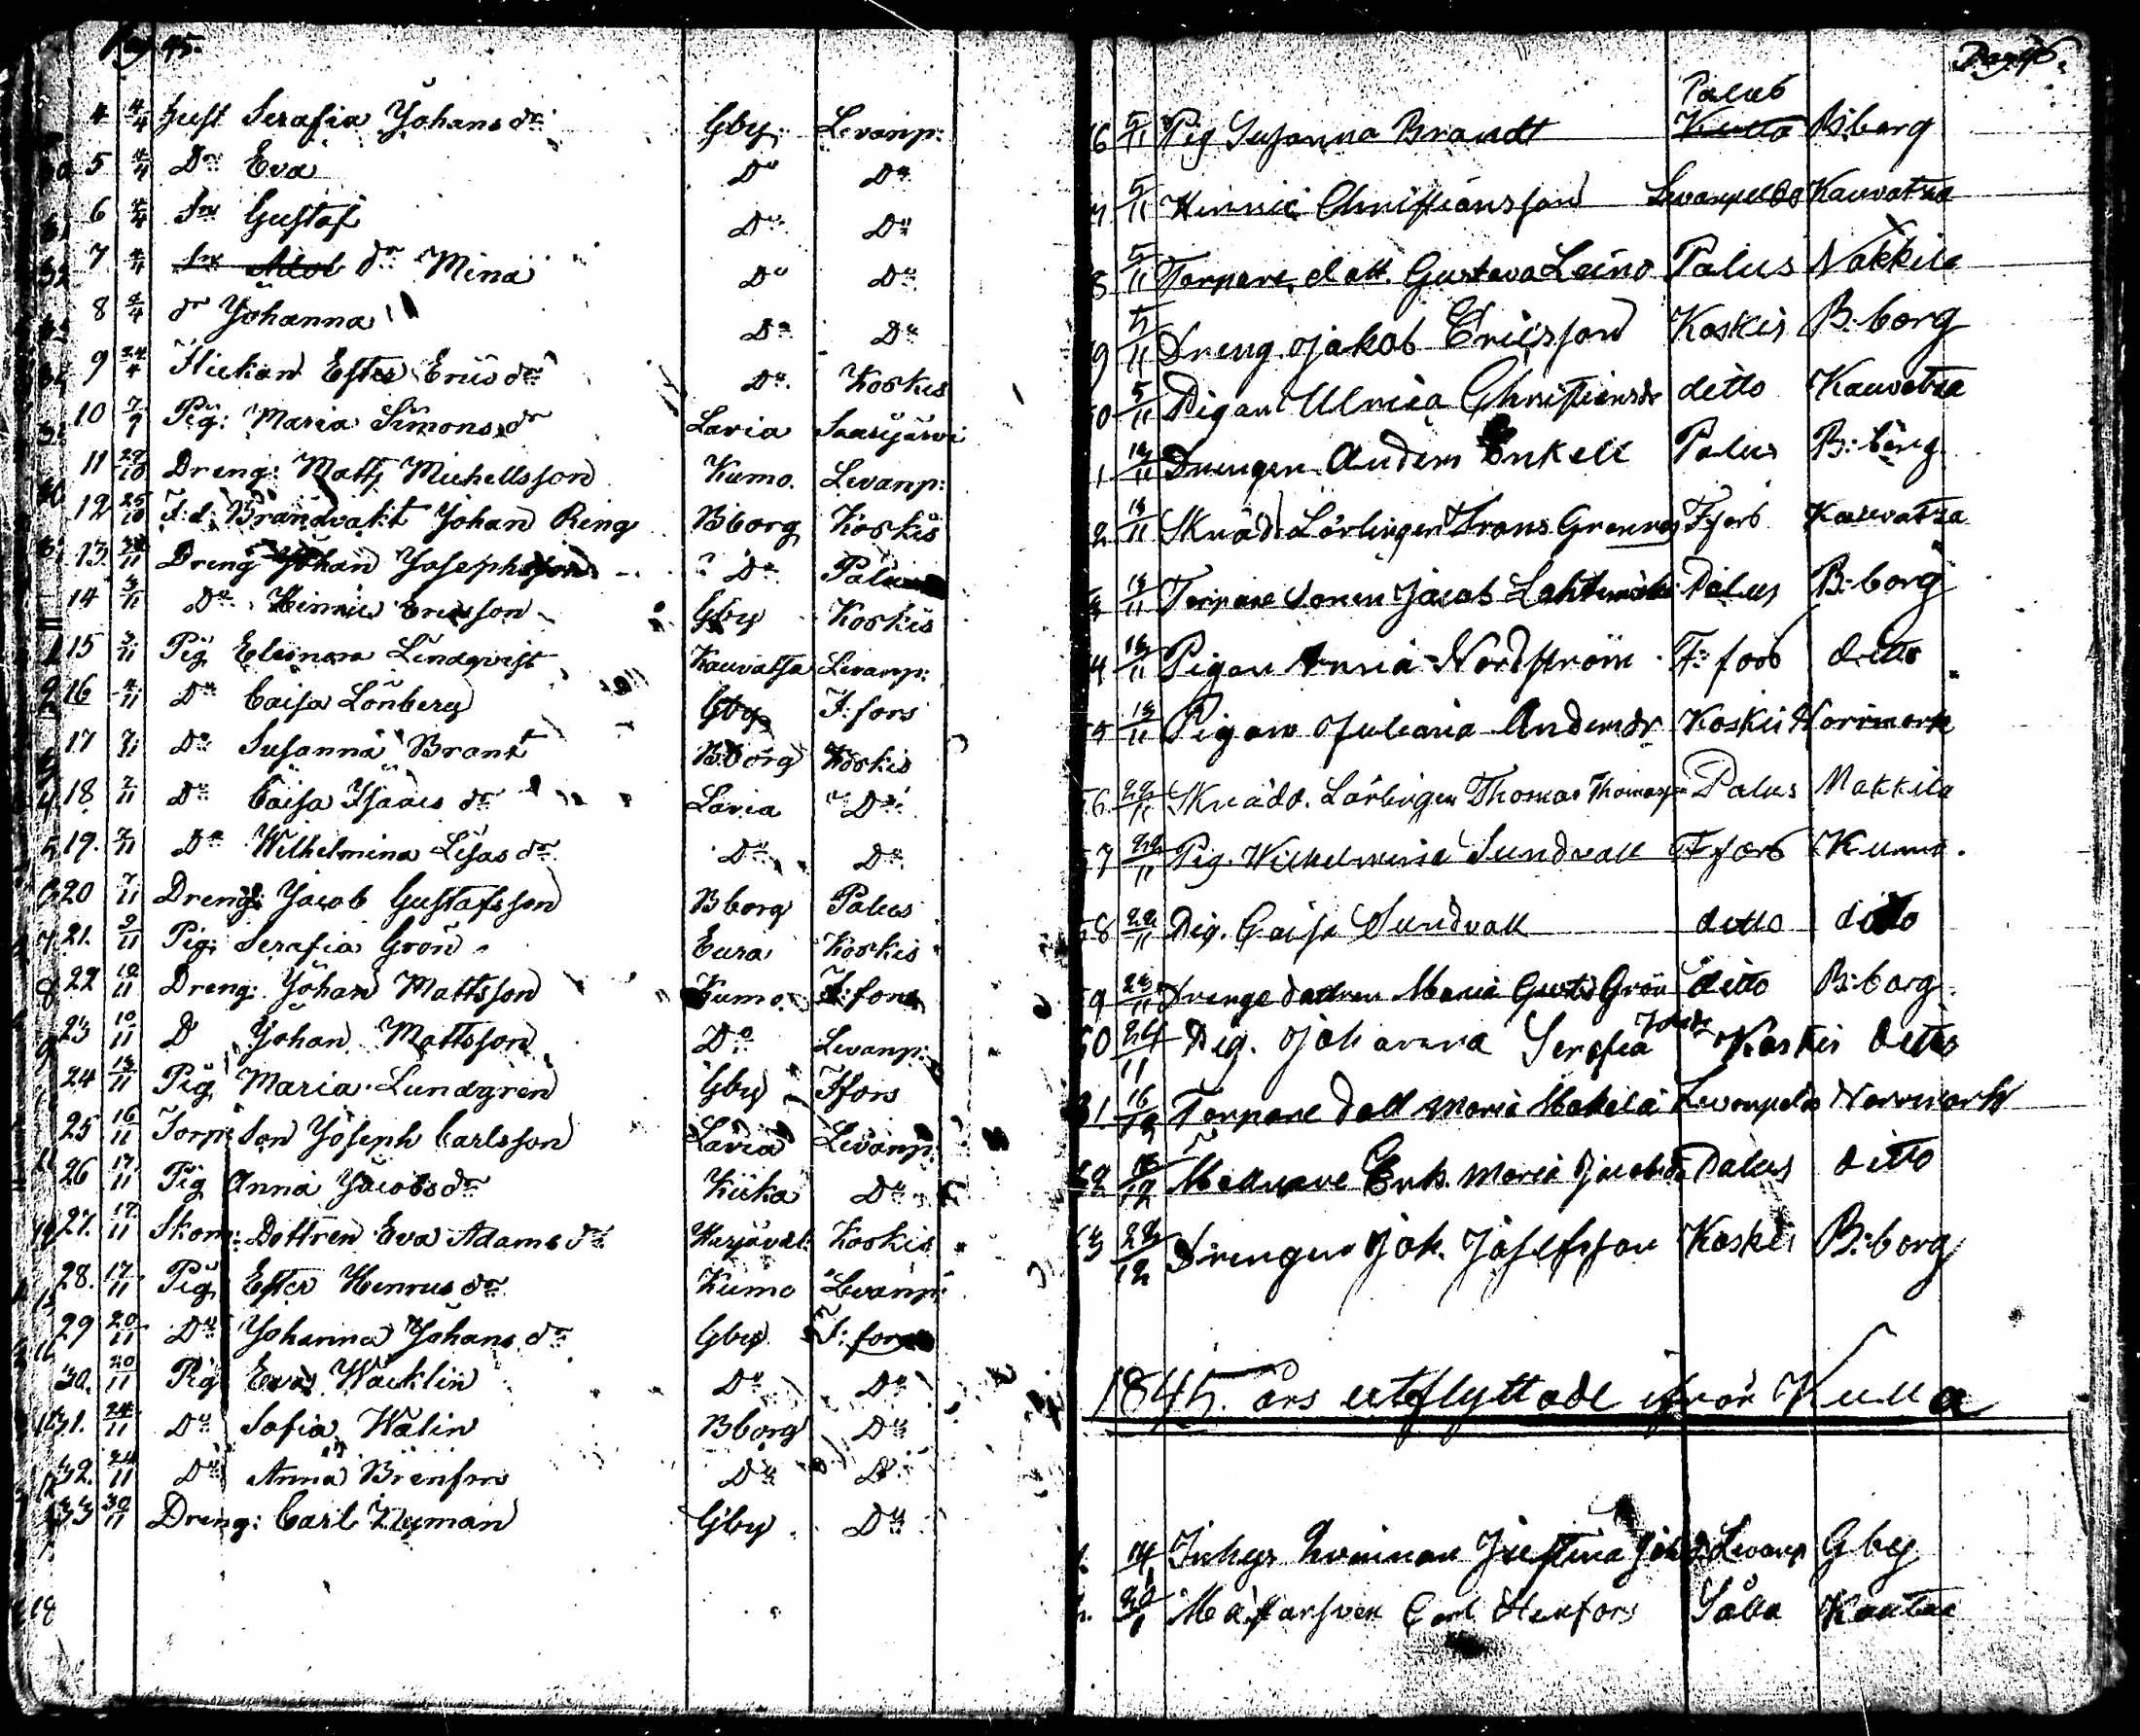 Pag 95.
4 4/4 Hust Serafia Johansdr Gby Levanp:
5 4/4 Dr Eva Do Do
6 4/4 Sn Gustaf Do Do
7 4/4 dr Mina Do Do
8 4/4 dr Johanna Do Do
9 24/4 Flickan Ester Ericsdr Do Koskis
10 7/9 Pig: Maria Simonsdr Lavia Saarijärvi
11 29/10 Dreng: Matts Michellsson Kumo. Levanp:
12 25/10 F:d: Brandvakt Johan Ring Bborg Koskis
13. Dreng Johan Josephsson Do Palus
14 3/11 Do Hinric Ericsson Gby Koskis
15 3/11 Pig Eleonora Lindqvist Kauvatsa Levanp:
16 4/11 Do Caisa Lönberg Gby F:fors
17 7/11 Do Susanna Brant Bborg Koskis
18 7/11 Do Caisa Isaacsdr Lavia Do
19. 7/11 Do Wilhelmina Lisasdr Do Do
20 7/11 Dreng: Jacob Gustafsson Bborg Palus
21. 9/11 Pig: Serafia Grön Eura Koskis
22 10/11 Dreng: Johan Mattsson Kumo F:fors
23 10/11 D Johan Mattsson Do Levanp:
24 13/11 Pig Maria Lundgren Gby Ffors
25 16/11 Torp: Son Joseph Carlsson Lavia Levanp:
26 17/11 Pig Anna Jacobsdr Kiika Do
27. 17/11 Skom: Dottren Eva Adamsdr Harjavalt: Koskis
28. 17/11 Pig Ester Henricsdr Kumo Levanp:
29 20/11 Do Johanna Johansdr Gby F:fors
30. 20/11 Pig Eva Wäcklin Do Do
31. 24/11 Do Sofia Walin Bborg Do
32. 24/11 Do Anna Brenfors Do Do
33 30/11 Dreng: Carl Nyman Gby Do
18
Pag 96.
Palus
6 5/11 Pig Susanna Brandt Kulla B:borg
7 5/11 Hinric Christiansson Levanpeldo Kauvatsa
8 5/11 Torpare dott. Gustava Leino Palus Nakkila
9 5/11 Dreng Jakob Ericsson Koskis B:borg
0 5/11 Pigan Ulrica Christiansdr ditto Kauvatsa
1 13/11 Drengen Anders Enkell Palus B:borg
2 13/11 Skräd. Lärlingen Frans Grennas F:fors Kauvatsa
3 13/11 Torpare sonen Jacob Lahtenmäki Palus B:borg
4 13/11 Pigan Anna Nordström F:fors ditto
5 13/11 Pigan Juliana Andersdr Koskis Norrmark
6 22/11 Skrädd. Lärlingen Thomas Thomasson Palus Nakkila
7 22/11 Pig. Wilhelmina Sundvall F:fors Kumo.
8 22/11 Pig. Caisa Sundvall ditto ditto
9 23/11 Drenge dottren Maria Gusts Grön ditto B:borg
60 24/11 Pig. Johanna Serafia Johsdr Koskis ditto
61 16/12 Torpare dott Maria Mäkelä Levanpeldo Norrmark
62 Enk. Maria Jacobsdr Palus ditto
63 23/12 Drengen Joh. Josefsson Koskis B:borg
1845. års utflyttade ifrån Kulla
14/1 Inhys Qvinnan Justina Johsdr Levanp Gby
Mästarsven Carl Stenfors